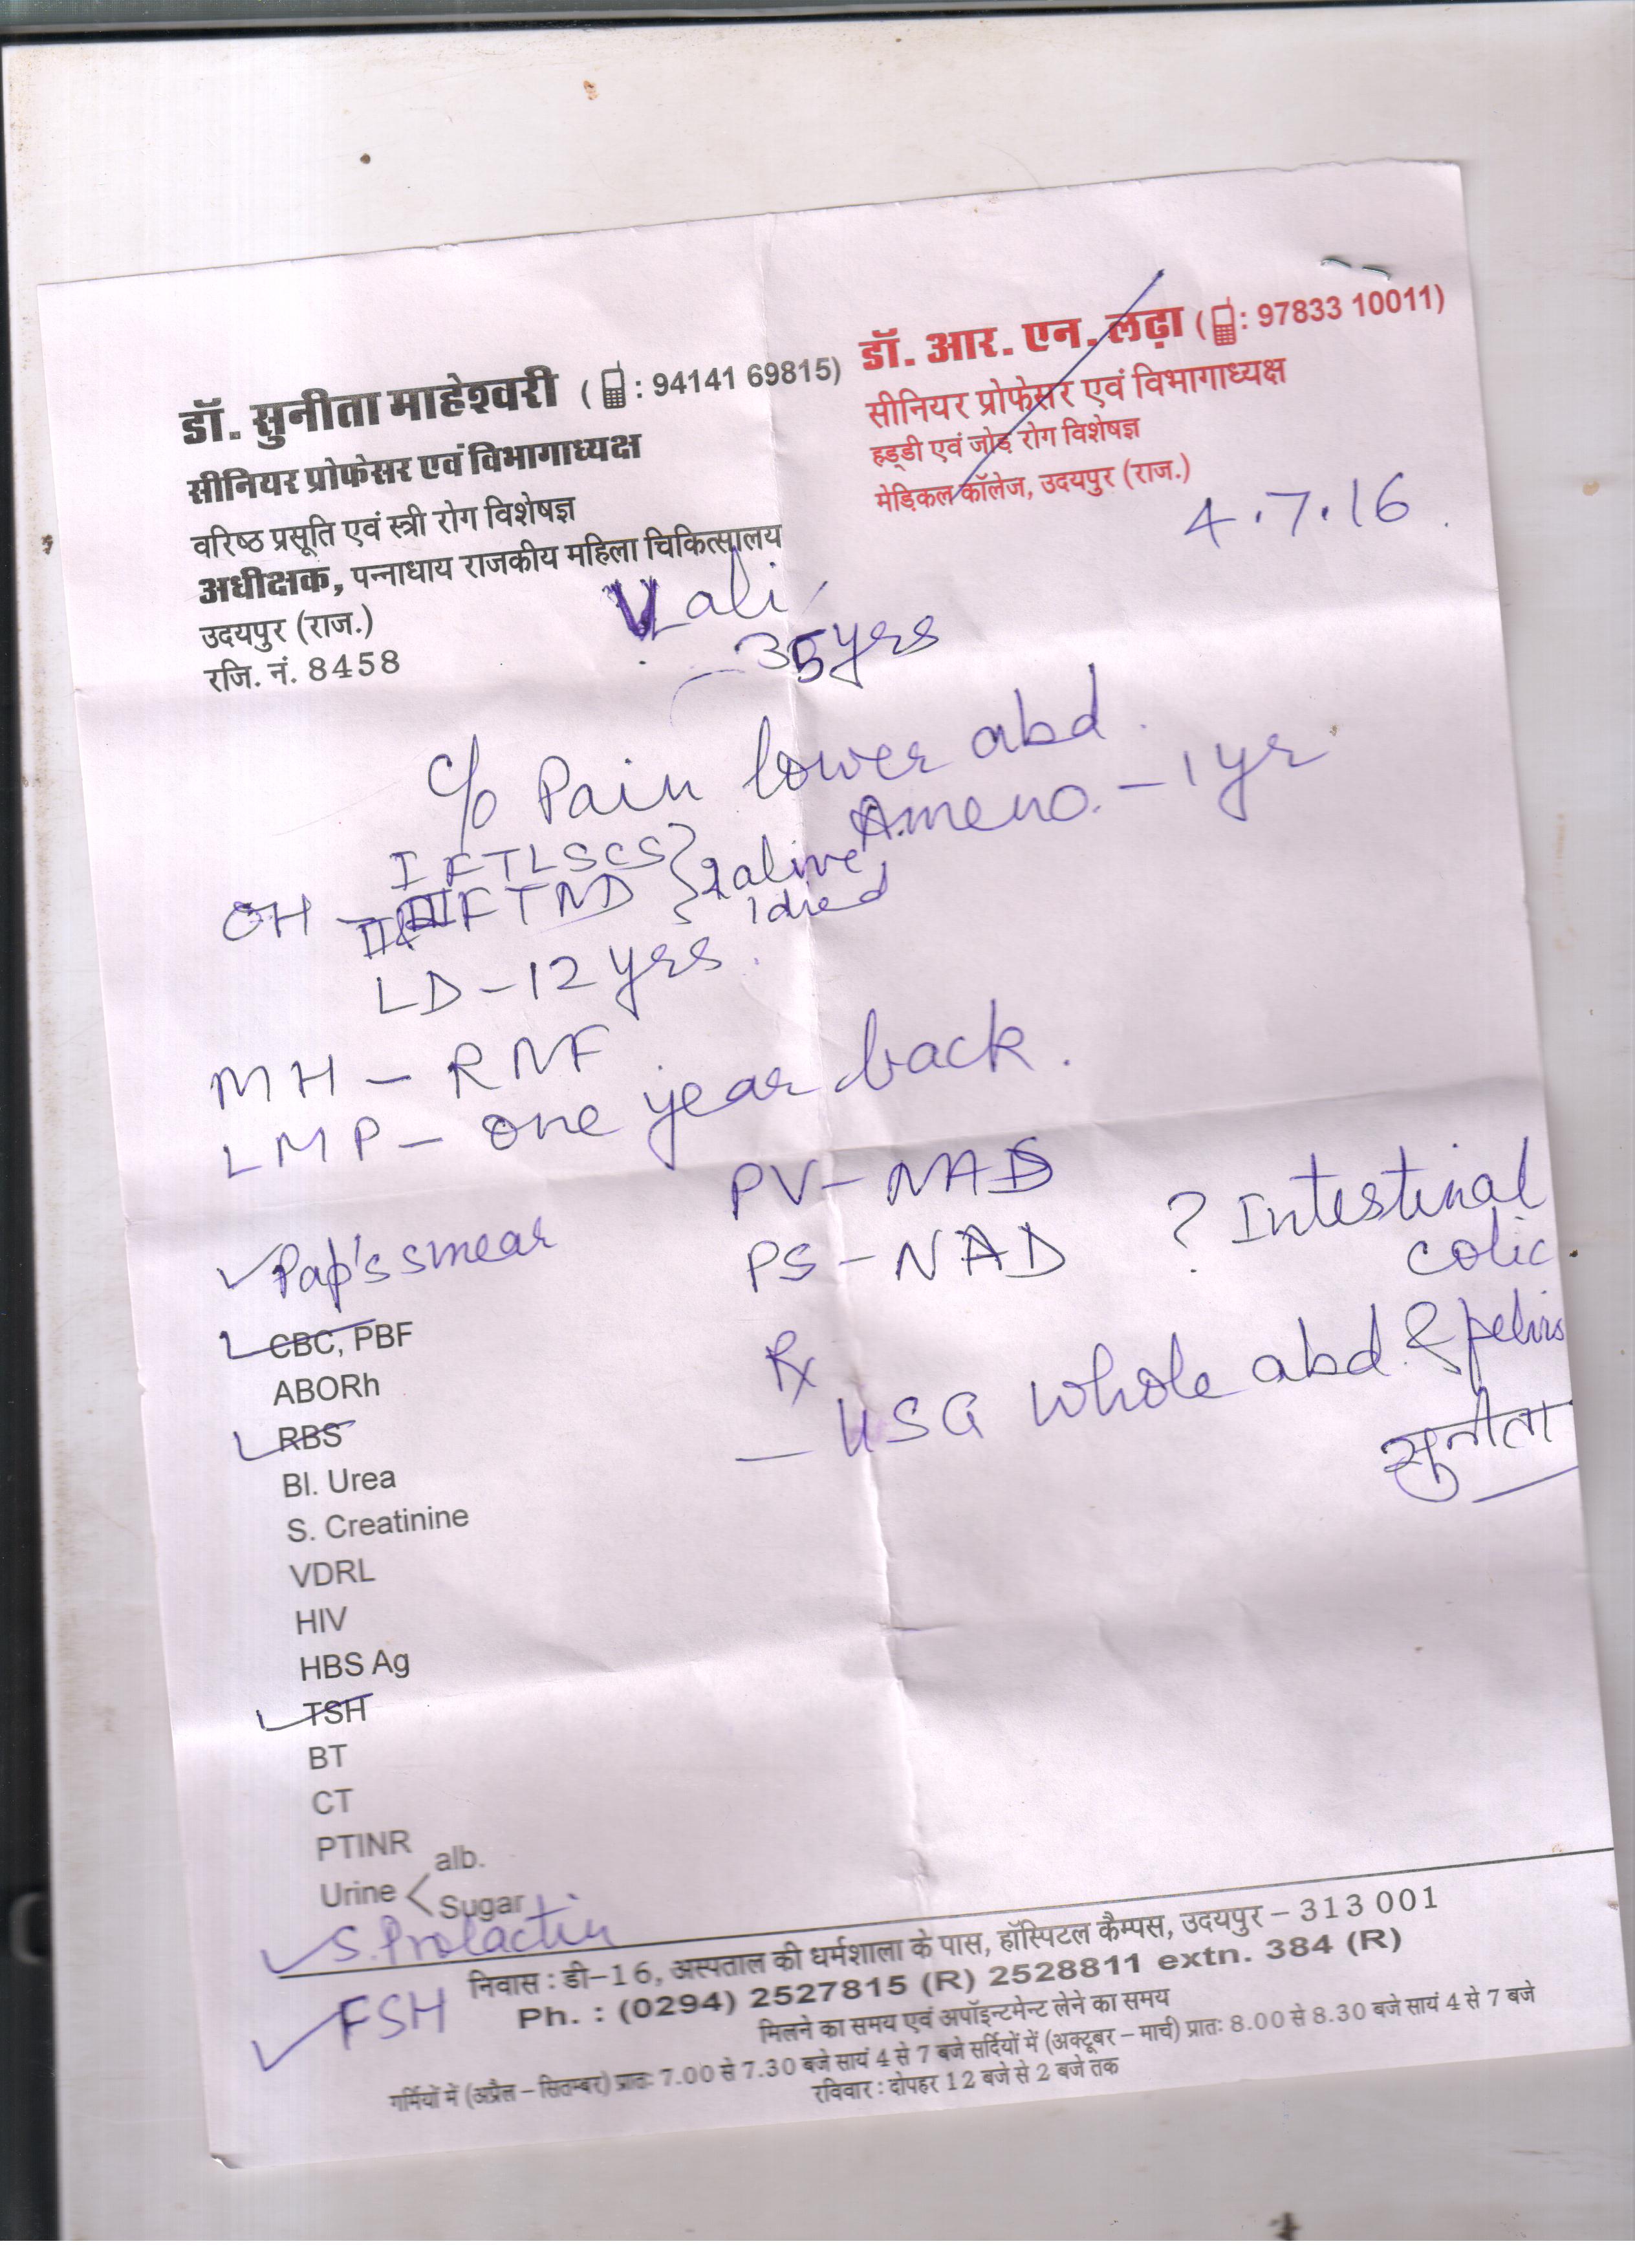 डॉ. सुनीता माहेश्वरी (: 94141 69815)
सीनियर प्रोफेसर एवं विभागाध्यक्ष
वरिष्ठ प्रसूति एवं स्त्री रोग विशेषज्ञ
अधीक्षक, पन्नाधाय राजकीय महिला चिकित्सालय
उदयपुर (राज.)
रजि. नं. 8458
डॉ. आर. एन. लढ़ा (: 97833 10011)
सीनियर प्रोफेसर एवं विभागाध्यक्ष
हड्डी एवं जोड़ रोग विशेषज्ञ
मेडिकल कॉलेज, उदयपुर (राज.)
4.7.16
Lali
35 yrs
c/o Pain lower abd.
Ameno. - 1 yr
I FTLSCS
OH - II & III FTND } 2 alive, 1 died
LD - 12 yrs.
MH - RNF
LMP - one year back.
PV - NAD
PS - NAD
? Intestinal
colic.
Rx
- USG whole abd. & pelvis
सुनीता
Pap's smear
CBC, PBF
ABORh
RBS
Bl. Urea
S. Creatinine
VDRL
HIV
HBS Ag
TSH
BT
CT
PTINR
Urine < alb.
Sugar
S. Prolactin
FSH
निवास : डी-16, अस्पताल की धर्मशाला के पास, हॉस्पिटल कैम्पस, उदयपुर - 313 001
Ph. : (0294) 2527815 (R) 2528811 extn. 384 (R)
मिलने का समय एवं अपॉइन्टमेन्ट लेने का समय
गर्मियों में (अप्रैल - सितम्बर) प्रातः 7.00 से 7.30 बजे सायं 4 से 7 बजे सर्दियों में (अक्टूबर - मार्च) प्रातः 8.00 से 8.30 बजे सायं 4 से 7 बजे
रविवार : दोपहर 12 बजे से 2 बजे तक